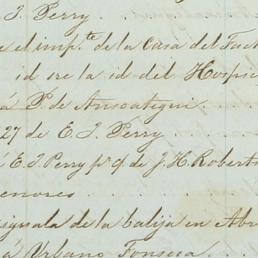 J. Perry
el imp.te de la Casa del Fact
id re la id del Hospic
á P. de Ansoategui
27 de E. J. Perry
E. J. Perry p.r q.e de J. H. Roberts
enores
signala de la balija en Abr
á Urbano Fonseca